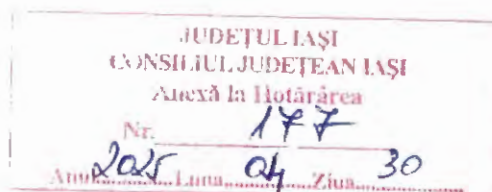 JUDEŢUL IAŞI
CONSILIUL JUDEŢEAN IAŞI
Anexă la Hotărârea
Nr. 177
Anul 2025 Luna 04 Ziua 30